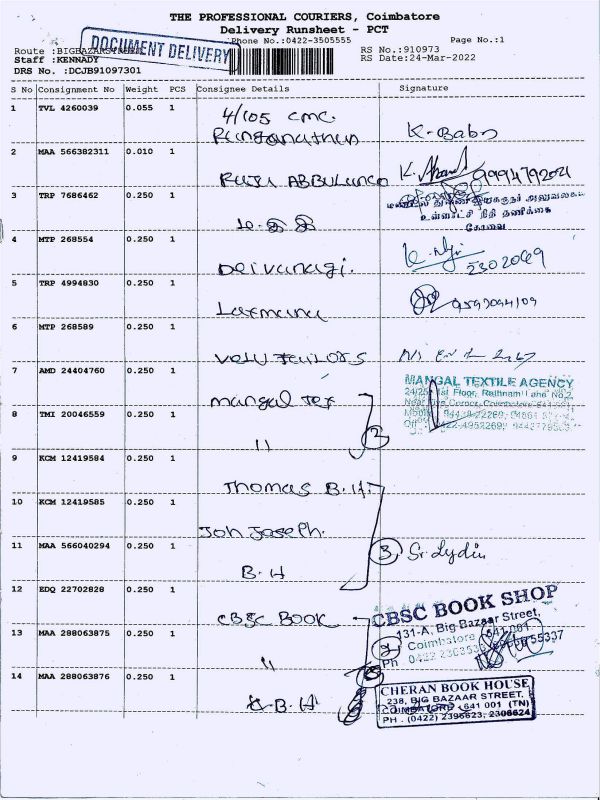 THE PROFESSIONAL COURIERS, Coimbatore
Delivery Runsheet - PCT
Phone No.:0422-3505555 Page No.:1
Route :BIGBAZARSTREET RS No.:910973
Staff :KENNADY RS Date:24-Mar-2022
DOCUMENT DELIVERY
DRS No. :DCJB91097301
S No Consignment No Weight PCS Consignee Details Signature
1 TVL 4260039 0.055 1 4/105 CMC.
K. Babu
2 MAA 566382311 0.010 1
K. 9994792021
3 TRP 7686462 0.250 1
உள்ளாட்சி நிதி தணிக்கை
கோவை
4 MTP 268554 0.250 1
Deivanagi. 2302069
5 TRP 4994830 0.250 1
Laxmana
6 MTP 268589 0.250 1
Velu Tailors
7 AMD 24404760 0.250 1 MANGAL TEXTILE AGENCY
Mangal Tex
8 TMI 20046559 0.250 1
11 2
9 KCM 12419584 0.250 1
Thomas B.H.
10 KCM 12419585 0.250 1
Joh Joseph.
11 MAA 566040294 0.250 1 3 Sr. Lydia
B.H
12 EDQ 22702828 0.250 1 CBSC BOOK SHOP
CBSC BOOK 131-A, Big Bazaar Street,
13 MAA 288063875 0.250 1 Coimbatore 641 001
11 Ph
14 MAA 288063876 0.250 1 CHERAN BOOK HOUSE
B.H 238, BIG BAZAAR STREET,
COIMBATORE - 641 001 (TN)
PH . (0422) 2396623, 2306624